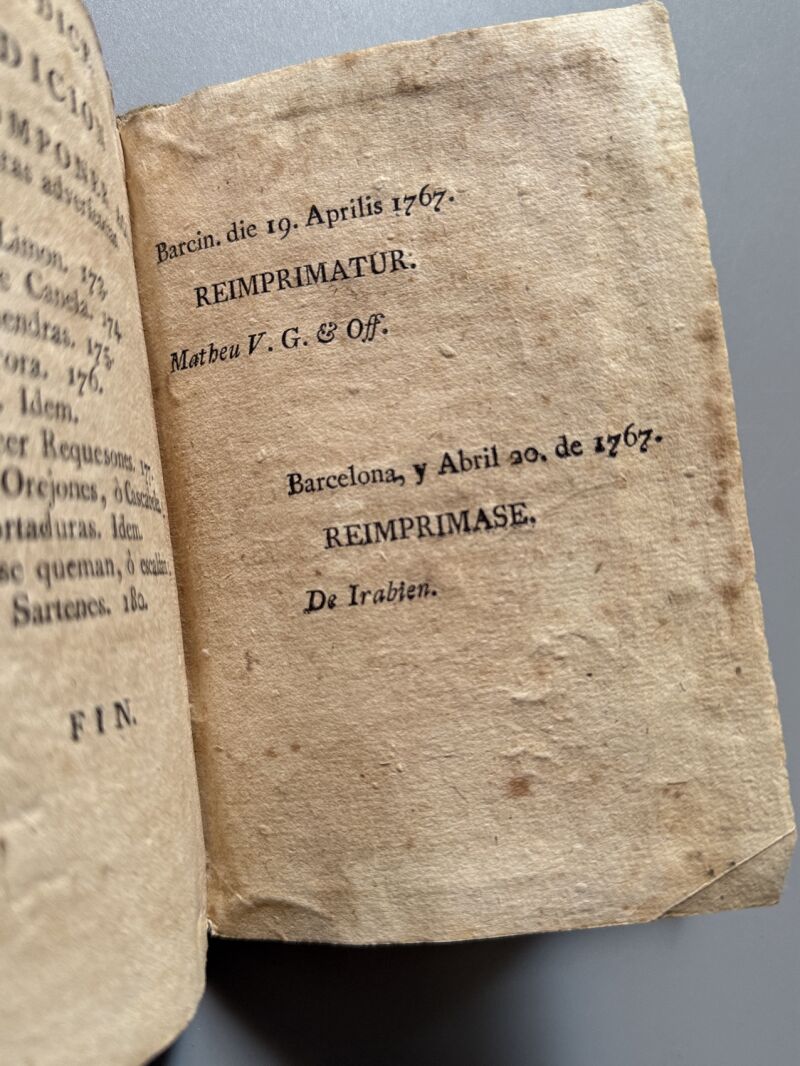 DICE
DICION
OMPONER
ras advertencias
Limon. 173.
e Canela. 174
endras. 175.
ora. 176.
Idem.
cer Requesones. 17
Orejones, ò Cascabel
ortaduras. Idem.
se queman, ò escald
Sartenes. 180.
FIN.
Barcin. die 19. Aprilis 1767.
REIMPRIMATUR.
Matheu V. G. & Off.
Barcelona, y Abril 20. de 1767.
REIMPRIMASE.
De Irabien.